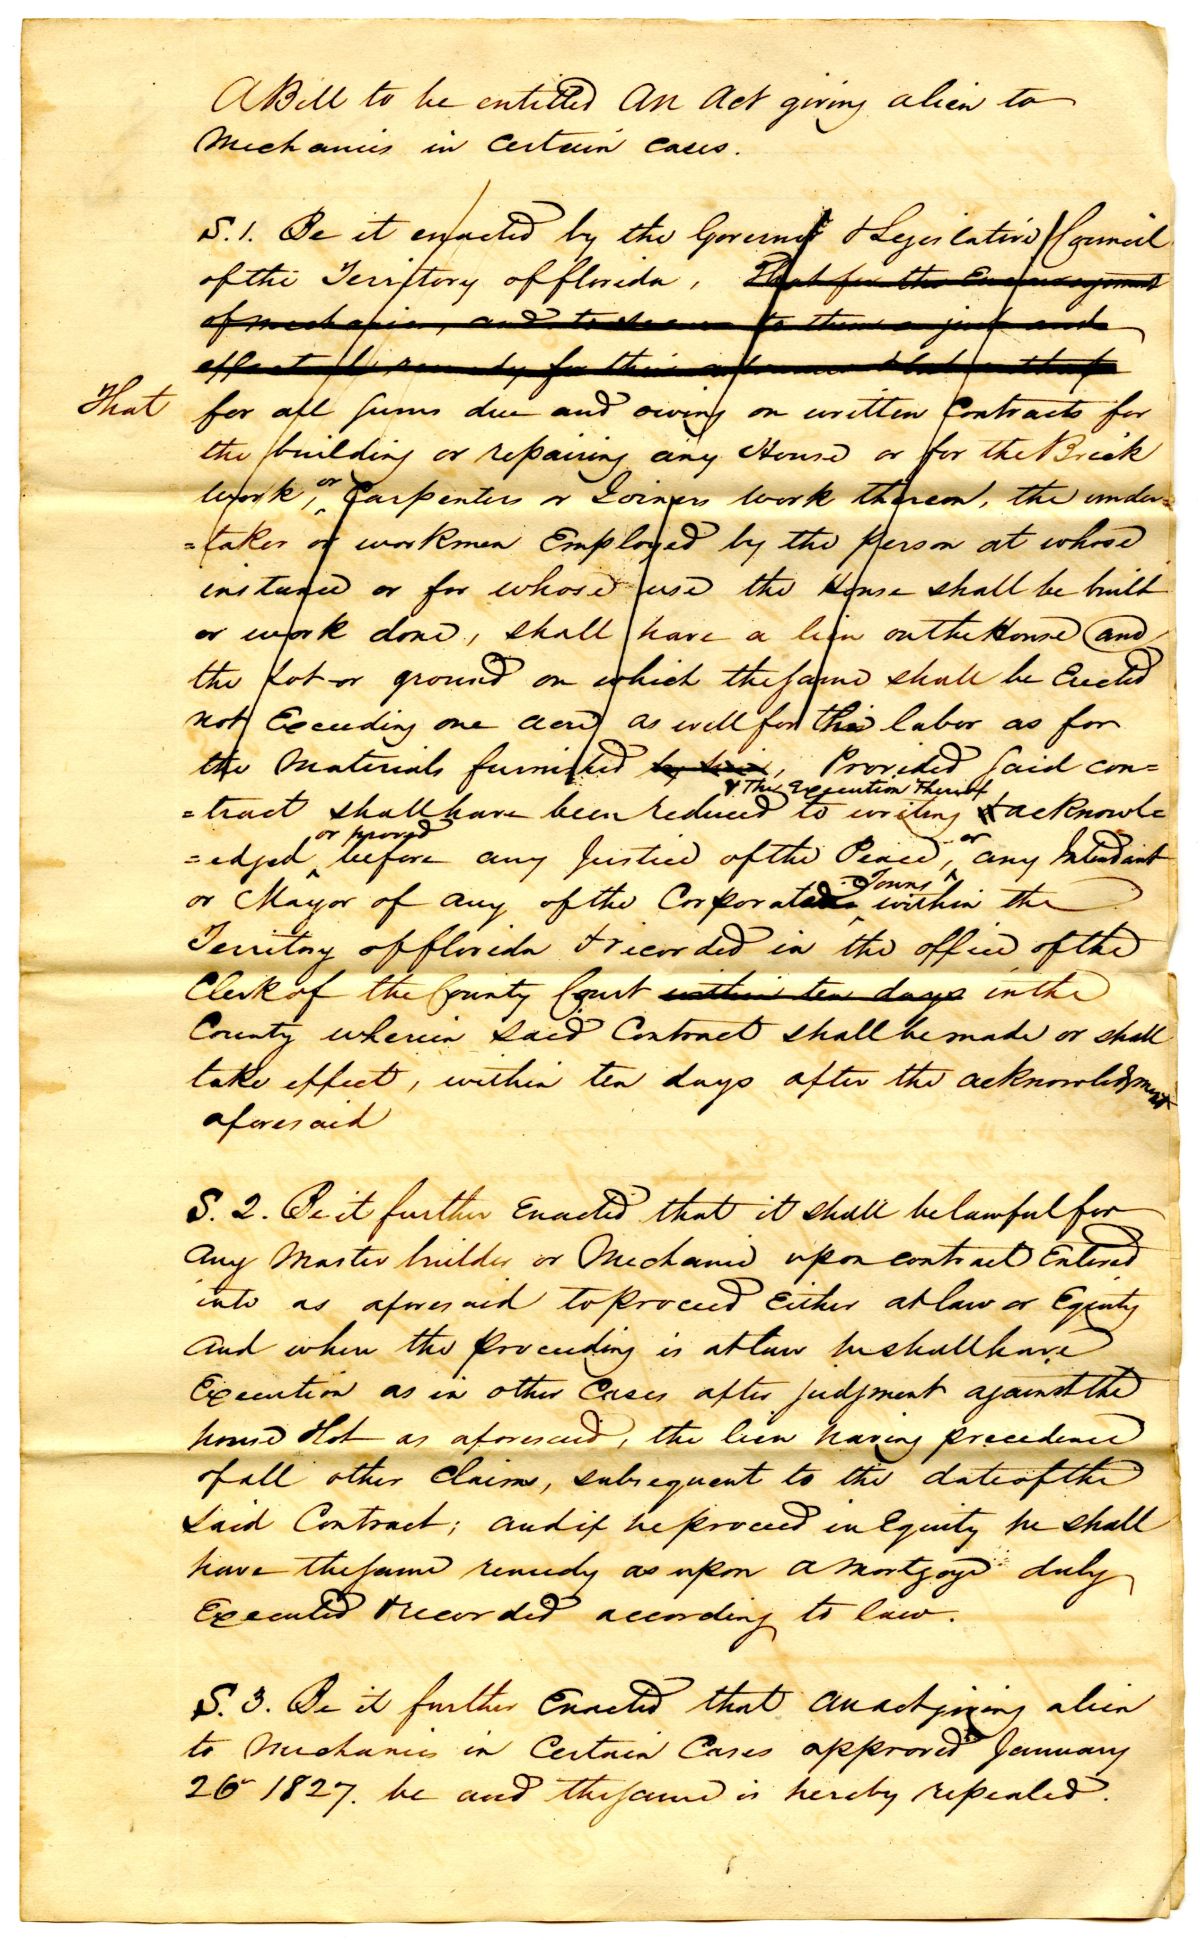 A Bill to be entitled An Act giving a lien to
Mechanics in Certain Cases.
S. 1. Be it enacted by the Governor & Legislative Council
of the Territory of florida, That for the Encouragement
of mechanics, and to secure to them a just and
effectual remedy for their
That for all sums due and owing on written Contracts for
the building or repairing any House or for the Brick
work, or Carpenters or Joiners work thereon, the under=
=taker or workmen Employed by the person at whose
instance or for whose use the House shall be built
or work done, shall have a lien on the House and
the Lot or ground on which the same shall be Erected
not Exceeding one acre as well for this labor as for
the Materials furnished by him, Provided said con=
& the Execution thereof
=tract shall have been reduced to writing & acknowle
or proved or
=edged before any Justice of the Peace, any Intendant
Towns
or Mayor of any of the Corporated within the
Territory of florida & recorded in the office of the
Clerk of the County Court within ten days in the
County wherein said Contract shall be made or shall
take effect, within ten days after the acknowledgment
aforesaid
S. 2. Be it further Enacted that it shall be lawful for
any Master builder or Mechanic upon contract Entered
into as aforesaid to proceed Either at law or Equity
and when the proceeding is at law he shall have
Execution as in other Cases after judgment against the
house & lot as aforesaid, the lien having precedence
of all other Claims, subsequent to the date of the
said Contract; and if he proceed in Equity he shall
have the same remedy as upon a mortgage duly
Executed & recorded according to law.
S. 3. Be it further Enacted that an act giving a lien
to Mechanics in Certain Cases approved January
26 1827. be and the same is hereby repealed.